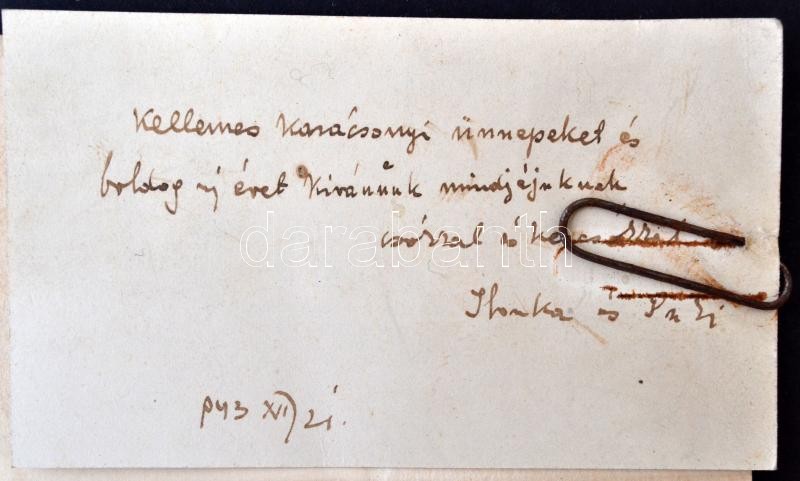 Kellemes Karácsonyi ünnepeket és
boldog uj évet Kivánunk mindjéjuknek
csózzal és
Ilonka és
XII/21.
darabanth